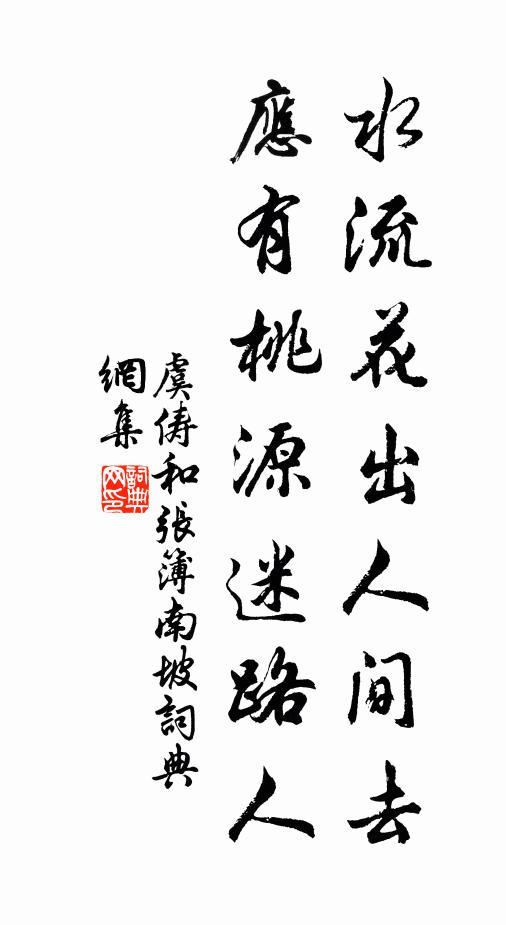 水流花出人間去
應有桃源迷路人
虞儔和張簿南坡詞典
網集
詞典網印